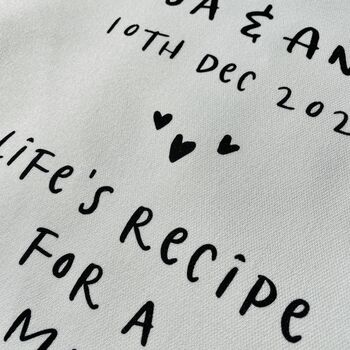 & 
10TH DEC 202
LIFE'S RECIPE
FOR A